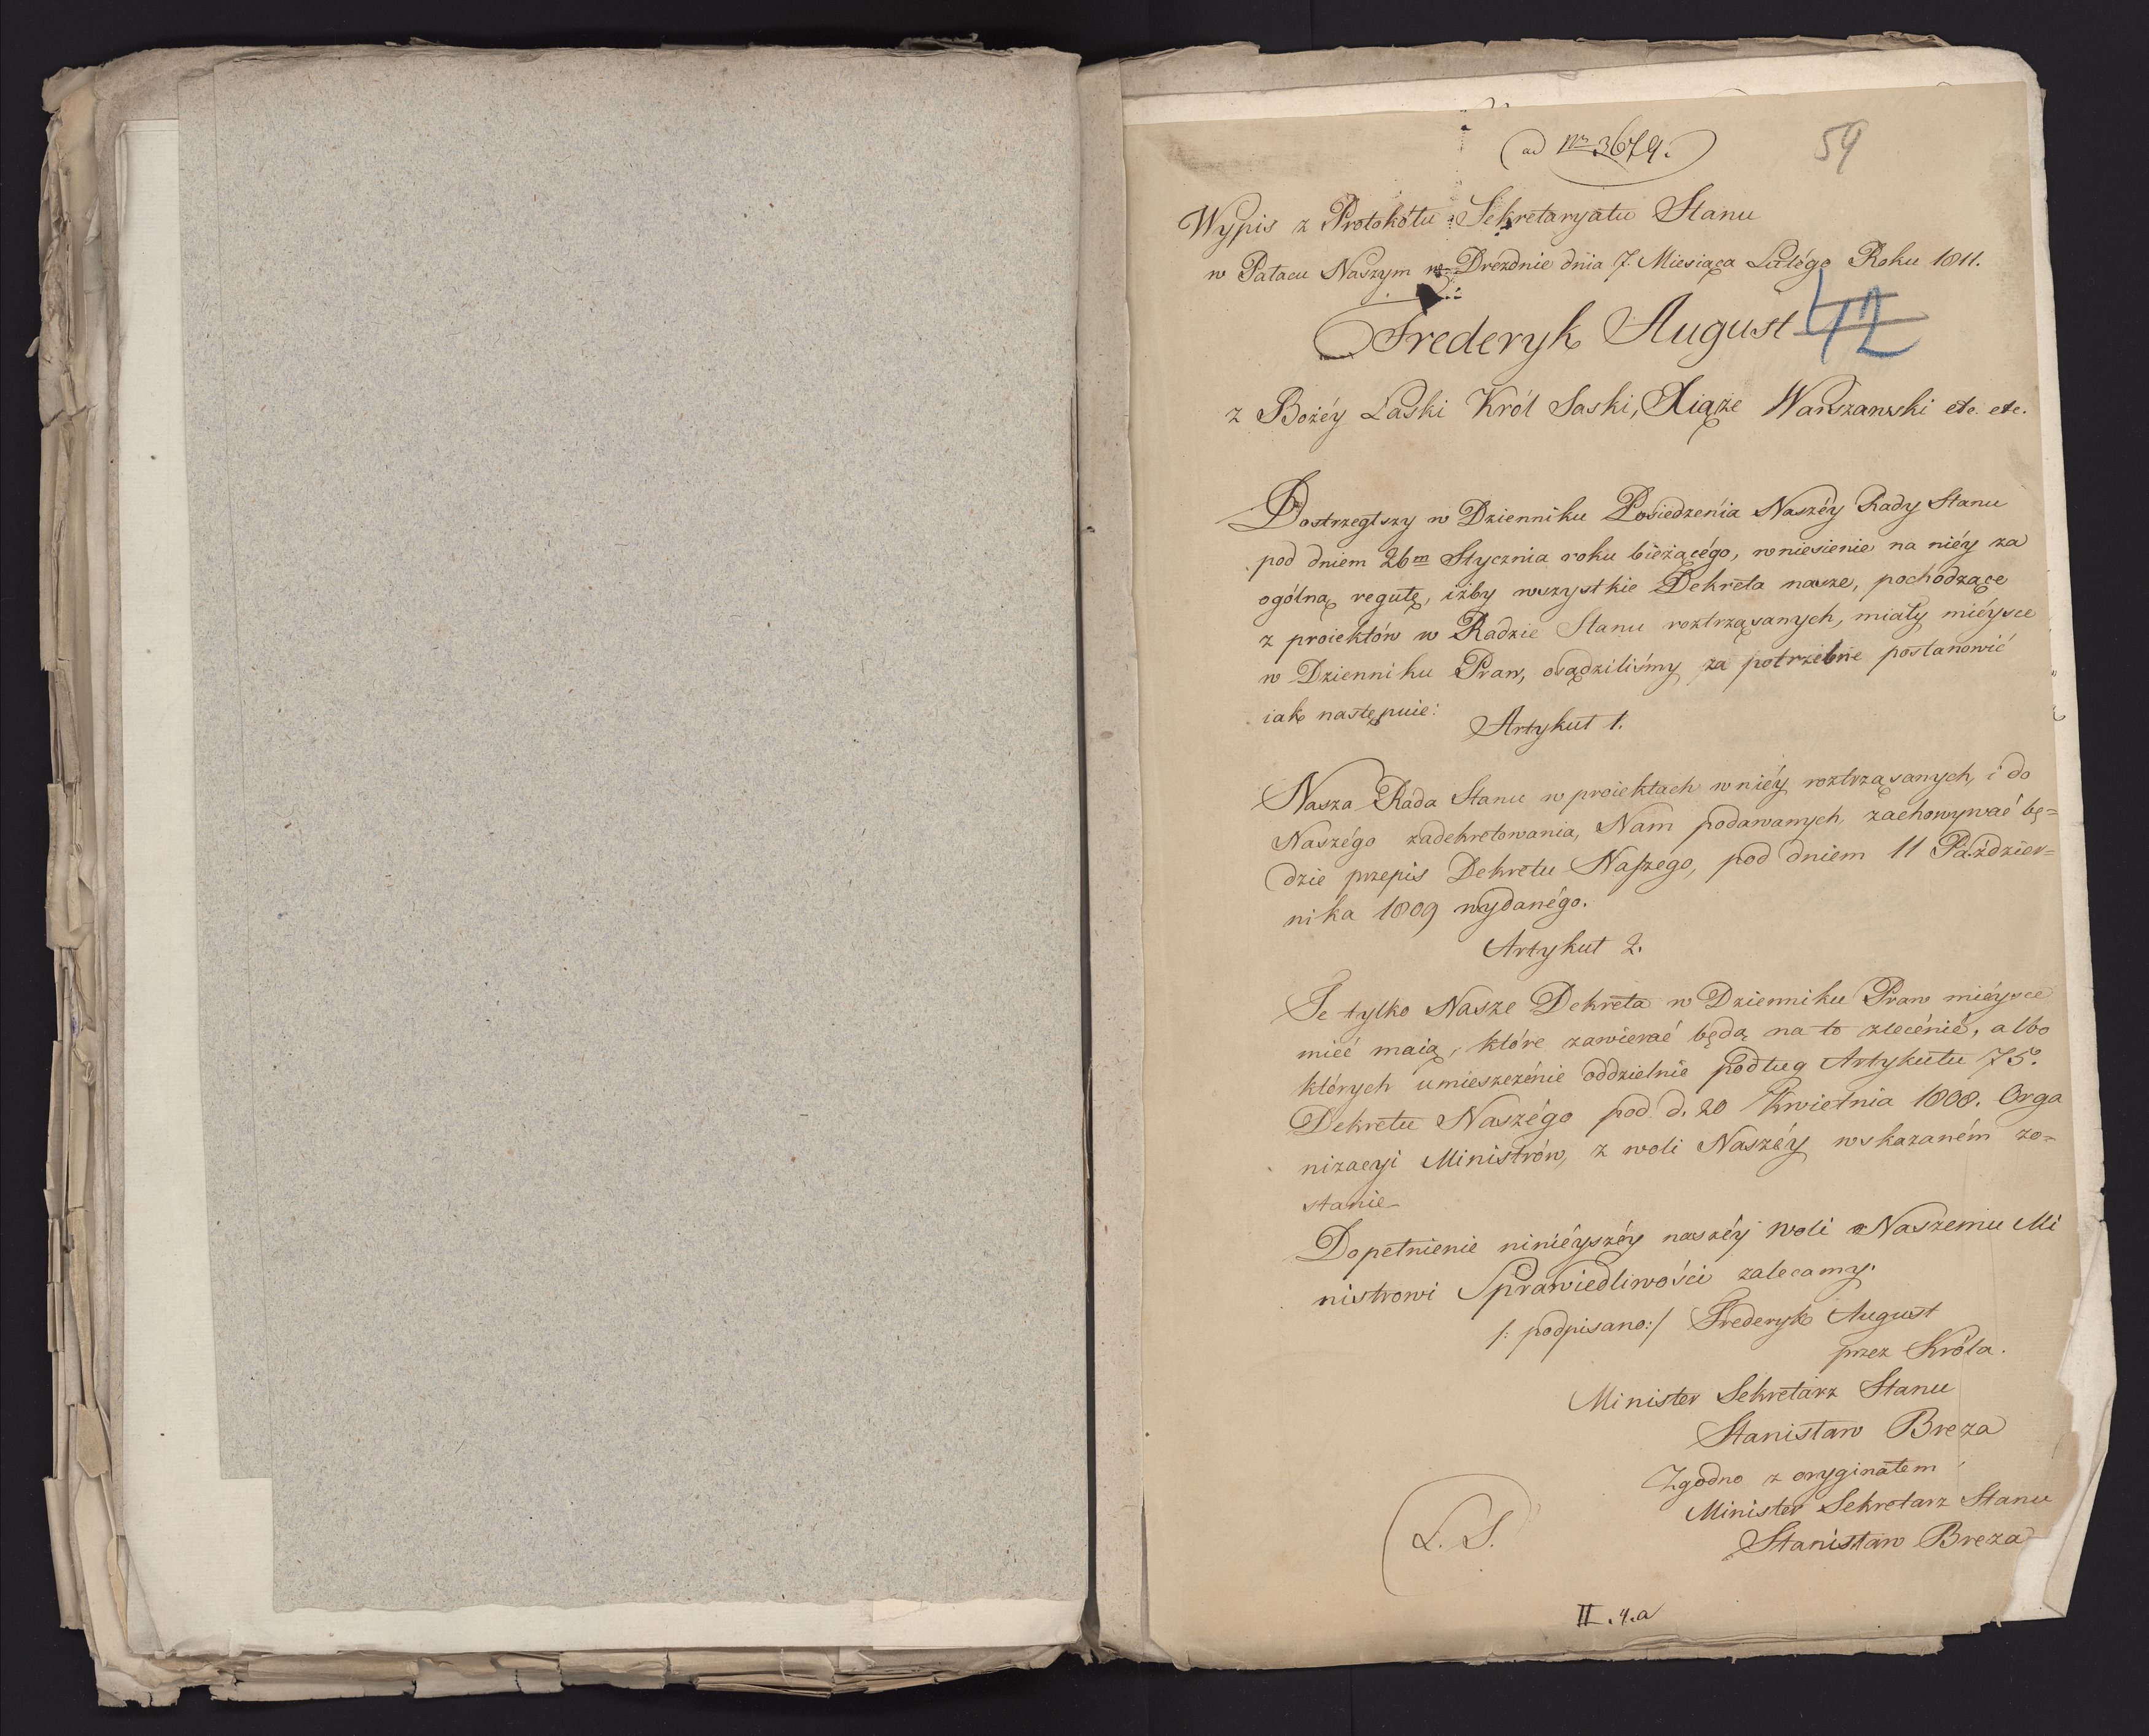 ad Nr 3679.
59
Wypis z Protokołu Sekretaryatu Stanu
w Pałacu Naszym w Dreznie dnia 7. Miesiąca Lutégo Roku 1811.
Frederyk August
42
z Bożéy Łaski Król Saski, Xiąże Warszawski etc. etc.
Dostrzegłszy w Dzienniku Posiedzénia Naszéy Rady Stanu
pod dniem 26m Stycznia roku bieżącégo, wniesienie na niéy za
ogólną regułę, iżby wszystkie Dekreta nasze, pochodzące
z proiektów w Radzie Stanu roztrząsanych, miały miéysce
w Dzienniku Praw, osądziliśmy za potrzebne postanowić
iak następuie:
Artykuł 1.
Nasza Rada Stanu w proiektach w niéy roztrząsanych, i do
Naszégo zadekretowania, Nam podawanych, zachowywać bę=
dzie przepis Dekretu Naszego, pod dniem 11 Paździer=
nika 1809 wydanégo.
Artykuł 2.
Te tylko Nasze Dekreta w Dzienniku Praw miéysce
mieć maią, które zawierać będą na to zlecénié, albo
których umieszczénie oddzielnie podług Artykułu 75.
Dekretu Naszégo pod d. 20 Kwietnia 1808. Orga
nizacyi Ministrów, z woli Naszéy wskazaném zo=
stanie
Dopełnienie niniéyszéy naszéy woli Naszemu Mi
nistrowi Sprawiedliwości zalecamy.
/: podpisano:/ Frederyk August
przez Króla.
Minister Sekretarz Stanu
Stanisław Breza
Zgodno z oryginałem
Minister Sekretarz Stanu
L. S.
Stanisław Breza
II.4.a